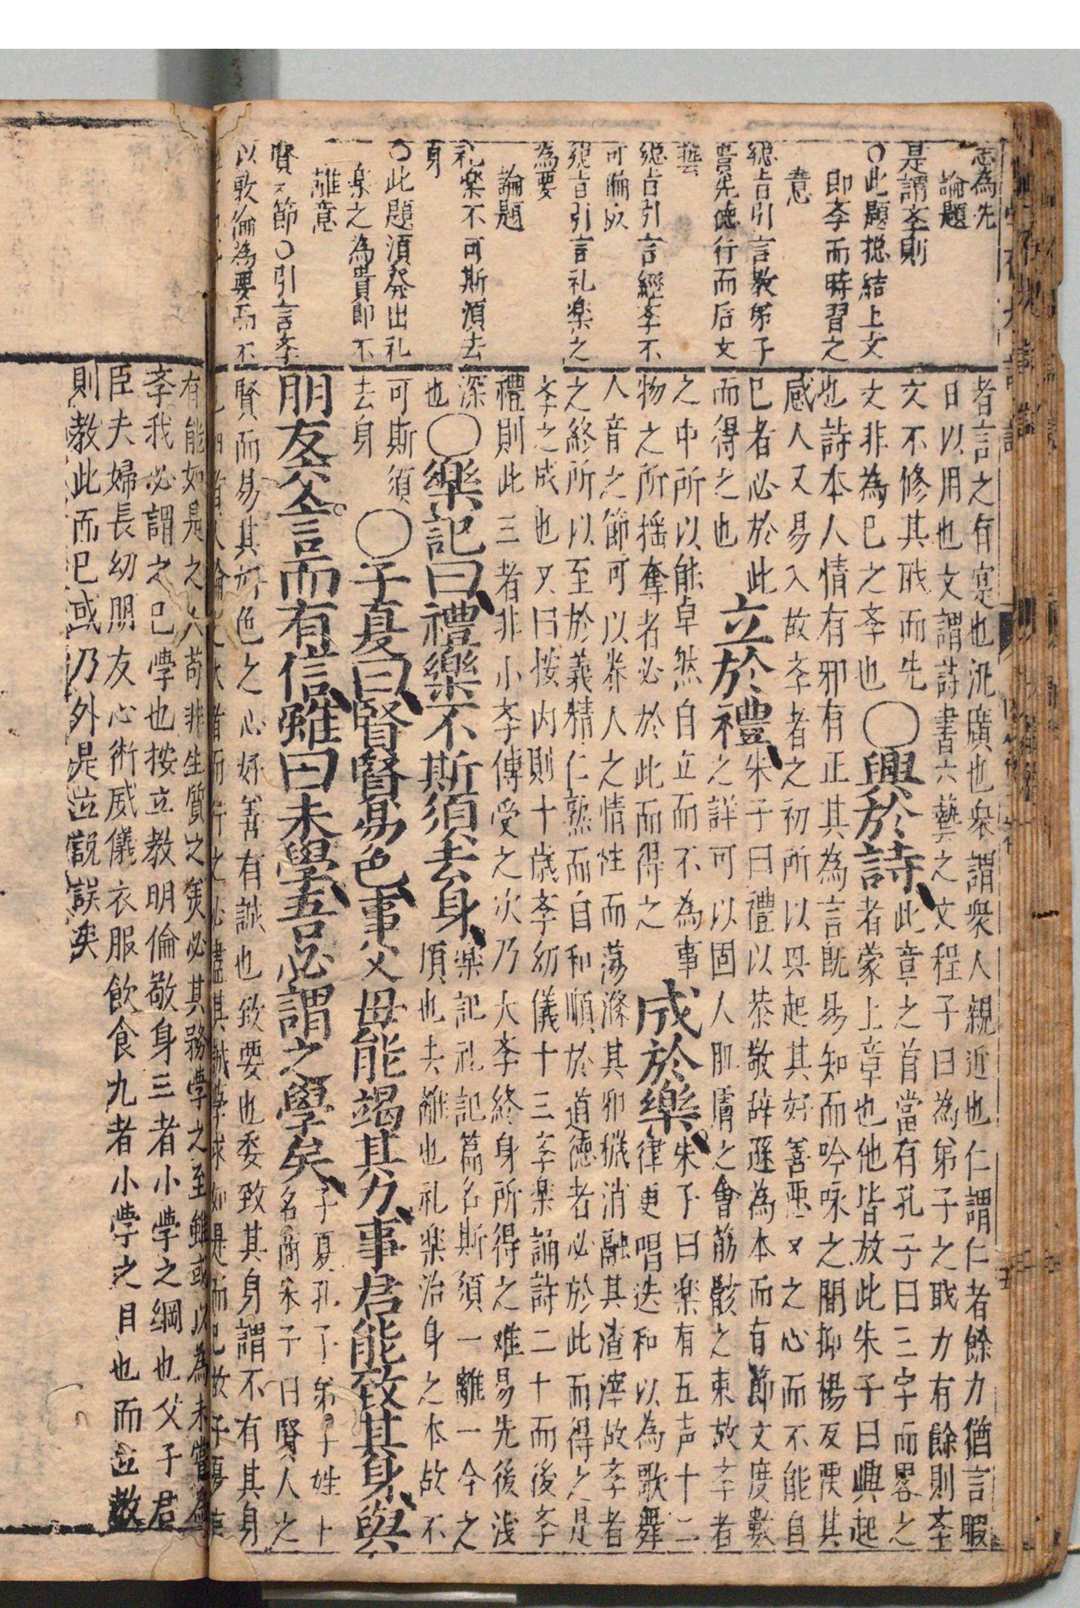 志為先
論題
是謂斈則
〇此題捴結上文
即斈而時習之
意
緫旨引言教弟子
當先德行而后文
藝
緫旨引言經斈不
緫旨引言礼楽之
為要
論題
礼楽不可斯湏去
身
〇此題湏発出礼
楽之為貴即不
離意
賢〻節〇引言斈
以敦倫為要而不
者言之有寔也汎廣也衆謂衆人親近也仁謂仁者餘力猶言暇
日以用也文謂詩書六藝之文程子曰為弟子之職力有餘則斈
文不修其職而先
文非為己之斈也〇興於詩此章之首當有孔子曰三字而畧之
者蒙上章也他皆放此朱子曰興起
也詩本人情有邪有正其為言既昜知而吟咏之間抑楊反覆其
感人又昜入故斈者之初所以興起其好善惡〻之心而不能自
已者必於此
而得之也
立於禮朱子曰禮以恭敬辞遜為本而有節文度數
之詳可以固人肌膚之會筋骸之束故斈者
之中所以能卓然自立而不為事
物之所揺奪者必於此而得之
成於樂朱子曰楽有五声十二
律更唱迭和以為歌舞
八音之節可以养人之情性而蕩滌其邪穢消融其渣滓故斈者
之終所以至於義精仁熟而自和順於道德者必於此而得之是
斈之成也又曰按内則十歳斈幼儀十三斈楽誦詩二十而後斈
禮則此三者非小斈傳受之次乃大斈終身所得之难昜先後浅
深
也〇樂記曰禮樂不斯須去身楽記礼記篇名斯須一離一今之
頃也去離也礼楽治身之本故不
可斯須
去身〇子夏曰賢賢易色事父母能竭其力事君能致其身與
朋友交言而有信雖曰未學吾必謂之學矣子夏孔子弟子姓卜
名商朱子曰賢人之
賢而易其好色之心好善有誠也致要也委致其身謂不有其身
有能如是之人苟非生質之美必其務學之至雖或以為未嘗為
斈我必謂之已學也按立教明倫敬身三者小學之綱也父子君
臣夫婦長幼朋友心術威儀衣服飲食九者小學之目也而立教
則教此而已或乃外是立説誤矣